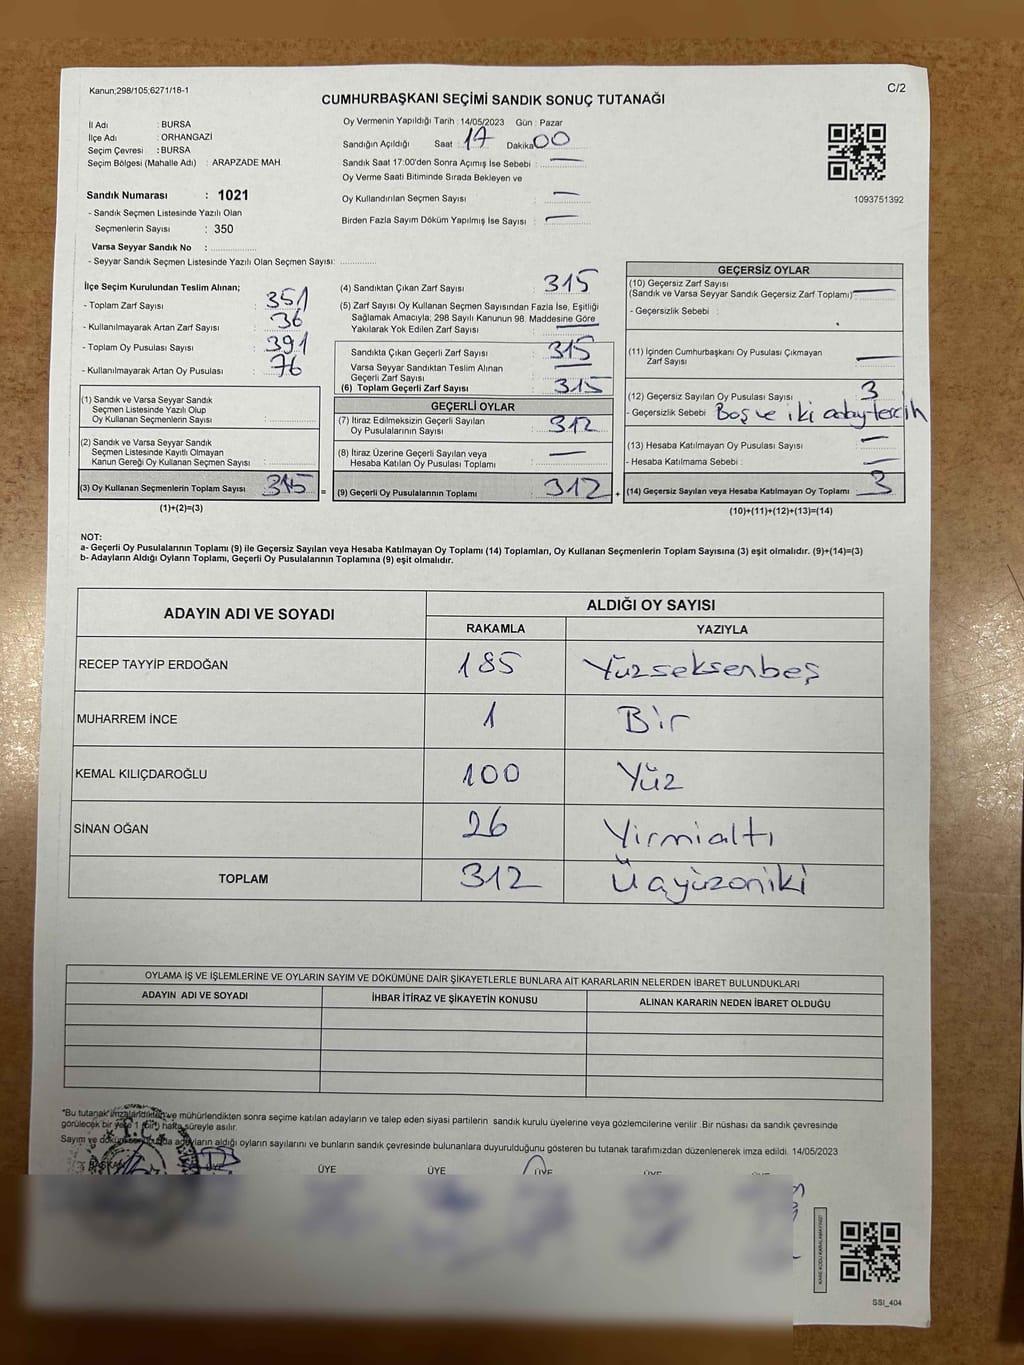 Kanun;298/105;6271/18-1
C/2
CUMHURBAŞKANI SEÇİMİ SANDIK SONUÇ TUTANAĞI
İl Adı : BURSA
İlçe Adı : ORHANGAZİ
Seçim Çevresi : BURSA
Seçim Bölgesi (Mahalle Adı) : ARAPZADE MAH.
Sandık Numarası : 1021
- Sandık Seçmen Listesinde Yazılı Olan
Seçmenlerin Sayısı : 350
Varsa Seyyar Sandık No :
- Seyyar Sandık Seçmen Listesinde Yazılı Olan Seçmen Sayısı:
Oy Vermenin Yapıldığı Tarih : 14/05/2023 Gün : Pazar
Sandığın Açıldığı Saat : 17 Dakika 00
Sandık Saat 17:00'den Sonra Açımış İse Sebebi : —
Oy Verme Saati Bitiminde Sırada Bekleyen ve
Oy Kullandırılan Seçmen Sayısı : —
Birden Fazla Sayım Döküm Yapılmış İse Sayısı : —
1093751392
İlçe Seçim Kurulundan Teslim Alınan;
- Toplam Zarf Sayısı : 351
- Kullanılmayarak Artan Zarf Sayısı : 36
- Toplam Oy Pusulası Sayısı : 391
- Kullanılmayarak Artan Oy Pusulası : 76
(1) Sandık ve Varsa Seyyar Sandık
Seçmen Listesinde Yazılı Olup
Oy Kullanan Seçmenlerin Sayısı :
(2) Sandık ve Varsa Seyyar Sandık
Seçmen Listesinde Kayıtlı Olmayan
Kanun Gereği Oy Kullanan Seçmen Sayısı :
(3) Oy Kullanan Seçmenlerin Toplam Sayısı : 315 =
(1)+(2)=(3)
(4) Sandıktan Çıkan Zarf Sayısı : 315
(5) Zarf Sayısı Oy Kullanan Seçmen Sayısından Fazla İse, Eşitliği
Sağlamak Amacıyla; 298 Sayılı Kanunun 98. Maddesine Göre
Yakılarak Yok Edilen Zarf Sayısı : —
Sandıkta Çıkan Geçerli Zarf Sayısı : 315
Varsa Seyyar Sandıktan Teslim Alınan
Geçerli Zarf Sayısı : —
(6) Toplam Geçerli Zarf Sayısı : 315
GEÇERLİ OYLAR
(7) İtiraz Edilmeksizin Geçerli Sayılan
Oy Pusulalarının Sayısı : 312
(8) İtiraz Üzerine Geçerli Sayılan veya
Hesaba Katılan Oy Pusulası Toplamı : —
(9) Geçerli Oy Pusulalarının Toplamı : 312 +
GEÇERSİZ OYLAR
(10) Geçersiz Zarf Sayısı
(Sandık ve Varsa Seyyar Sandık Geçersiz Zarf Toplamı): —
- Geçersizlik Sebebi :
(11) İçinden Cumhurbaşkanı Oy Pusulası Çıkmayan
Zarf Sayısı : —
(12) Geçersiz Sayılan Oy Pusulası Sayısı : 3
- Geçersizlik Sebebi : Boş ve iki aday tercih
(13) Hesaba Katılmayan Oy Pusulası Sayısı : —
- Hesaba Katılmama Sebebi : —
(14) Geçersiz Sayılan veya Hesaba Katılmayan Oy Toplamı : 3
(10)+(11)+(12)+(13)=(14)
NOT:
a- Geçerli Oy Pusulalarının Toplamı (9) ile Geçersiz Sayılan veya Hesaba Katılmayan Oy Toplamı (14) Toplamları, Oy Kullanan Seçmenlerin Toplam Sayısına (3) eşit olmalıdır. (9)+(14)=(3)
b- Adayların Aldığı Oyların Toplamı, Geçerli Oy Pusulalarının Toplamına (9) eşit olmalıdır.
ADAYIN ADI VE SOYADI
ALDIĞI OY SAYISI
RAKAMLA YAZIYLA
RECEP TAYYİP ERDOĞAN 185 Yüzseksenbeş
MUHARREM İNCE 1 Bir
KEMAL KILIÇDAROĞLU 100 Yüz
SİNAN OĞAN 26 Yirmialtı
TOPLAM 312 Üçyüzoniki
OYLAMA İŞ VE İŞLEMLERİNE VE OYLARIN SAYIM VE DÖKÜMÜNE DAİR ŞİKAYETLERLE BUNLARA AİT KARARLARIN NELERDEN İBARET BULUNDUKLARI
ADAYIN ADI VE SOYADI İHBAR İTİRAZ VE ŞİKAYETİN KONUSU ALINAN KARARIN NEDEN İBARET OLDUĞU
"Bu tutanak imzalandıktan ve mühürlendikten sonra seçime katılan adayların ve talep eden siyasi partilerin sandık kurulu üyelerine veya gözlemcilerine verilir .Bir nüshası da sandık çevresinde
görülecek bir yere 1 (bir) hafta süreyle asılır.
Sayım ve adayların aldığı oyların sayılarını ve bunların sandık çevresinde bulunanlara duyurulduğunu gösteren bu tutanak tarafımızdan düzenlenerek imza edildi. 14/05/2023
BAŞKAN ÜYE ÜYE ÜYE ÜYE
T.C.
SSI_404